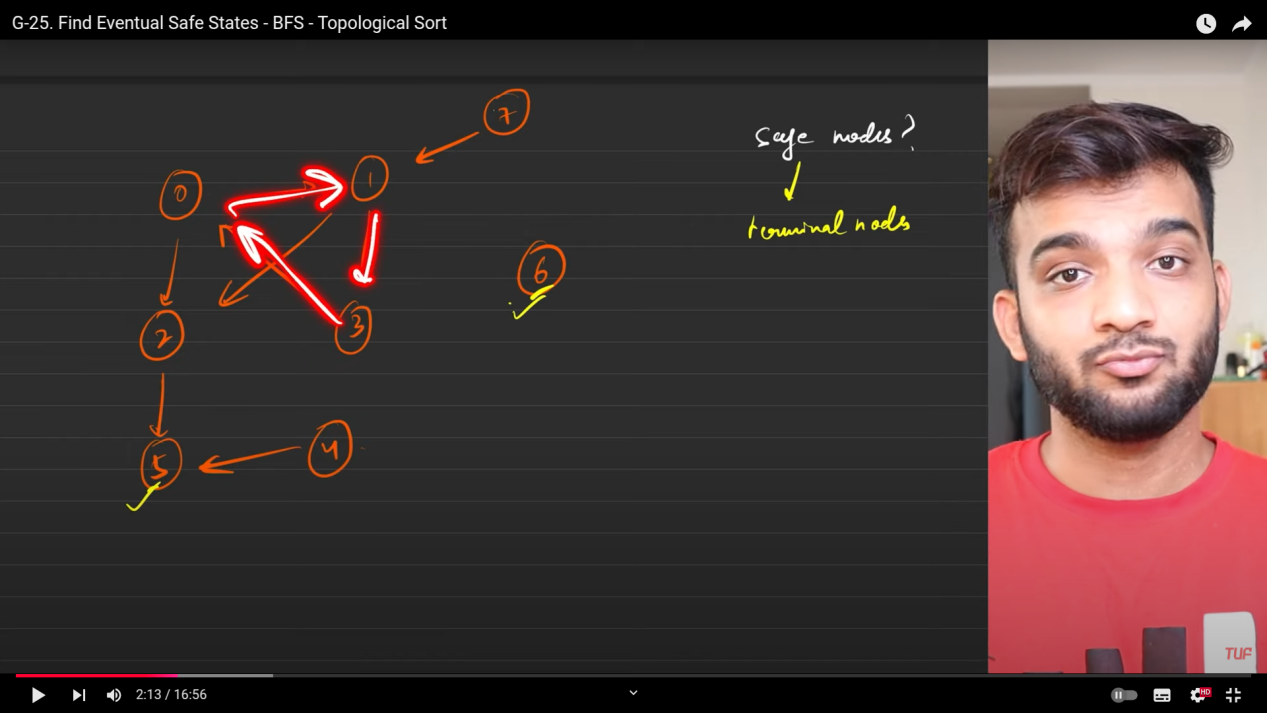 G-25. Find Eventual Safe States - BFS - Topological Sort
7
safe nodes?
0
1
terminal nodes
6
2
3
5
4
TUF
2:13 / 16:56
HD